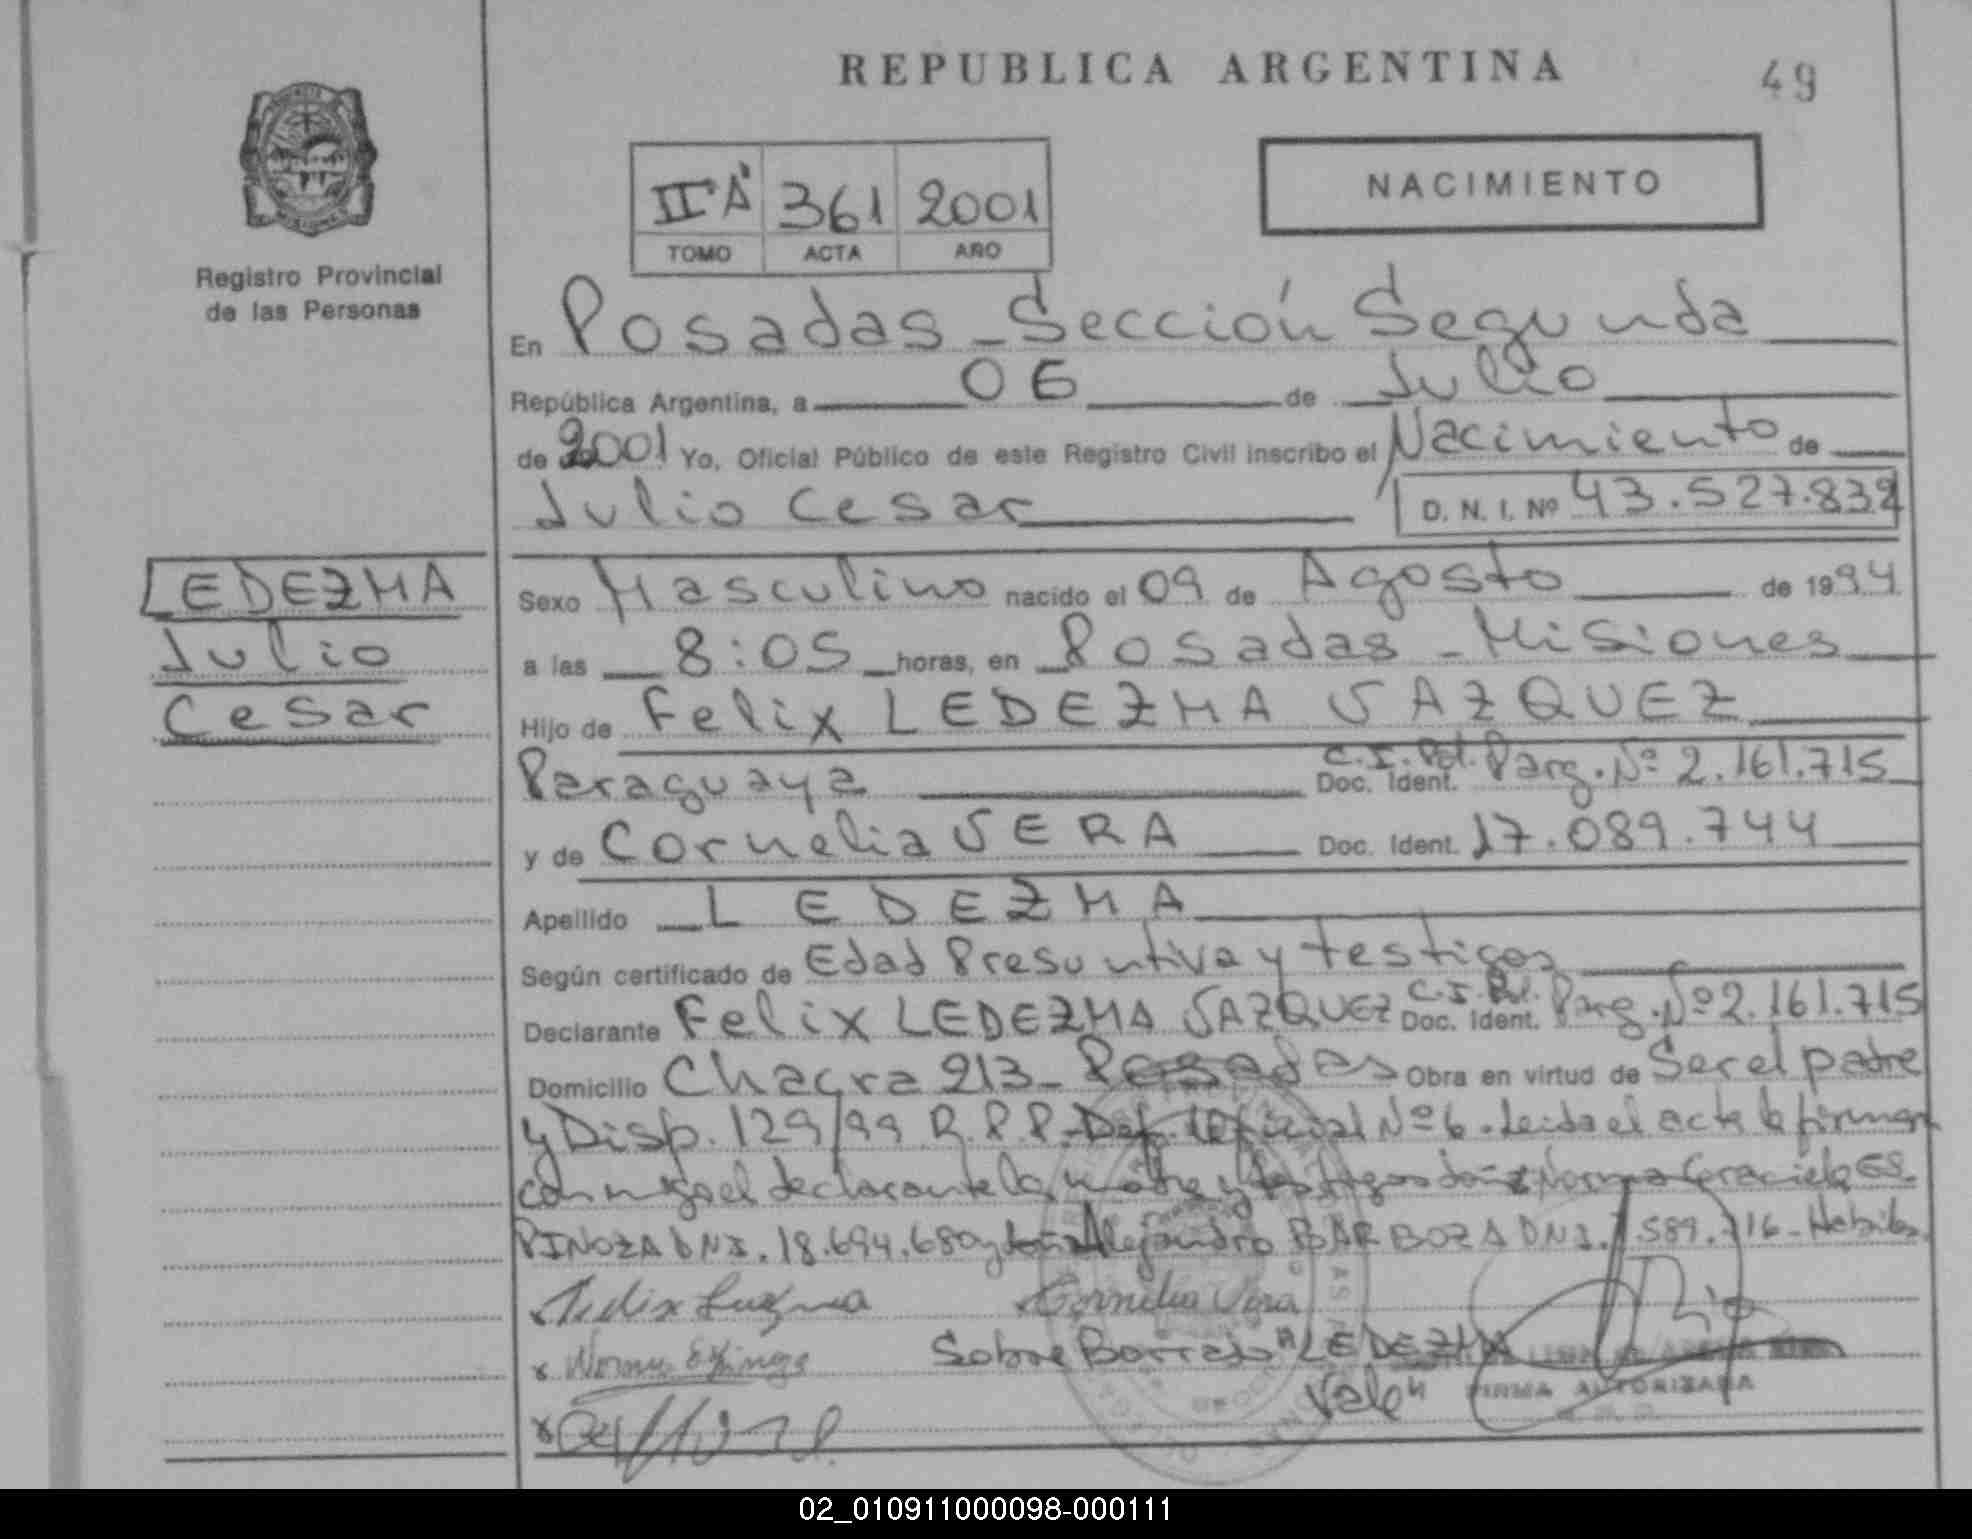 REPUBLICA ARGENTINA
49
NACIMIENTO
II "A" 361 2001
TOMO ACTA AÑO
Registro Provincial
de las Personas
En Posadas - Sección Segunda
República Argentina, a 06 de Julio
de 2001 Yo, Oficial Público de este Registro Civil inscribo el Nacimiento de
Julio Cesar D. N. I. Nº 43.527.832
LEDEZMA
Julio
Cesar
Sexo Masculino nacido el 09 de Agosto de 1994
a las 8:05 horas, en Posadas - Misiones
Hijo de Felix LEDEZMA VAZQUEZ
Paraguaya Doc. Ident. C.I. Pol. Parg. Nº 2.161.715
y de Cornelia VERA Doc. Ident. 17.089.744
Apellido LEDEZMA
Según certificado de Edad Presuntiva y testigos
Declarante Felix LEDEZMA VAZQUEZ Doc. Ident. C.I. Pol. Parg. Nº 2.161.715
Domicilio Chacra 213 - Posadas Obra en virtud de Ser el padre
y Disp. 129/99 R.P.P. - Def. Oficial Nº 6 - Leida el acta la firman
conmigo el declarante la madre y testigos doña Norma Graciela ES
PINOZA DNI. 18.694.680 y Alejandro BARBOZA DNI. 589.716 - Habiles
Cornelia Vera
Norma
Sobre Borrado "LEDEZMA
Vale"
FIRMA AUTORIZADA
02_010911000098-000111